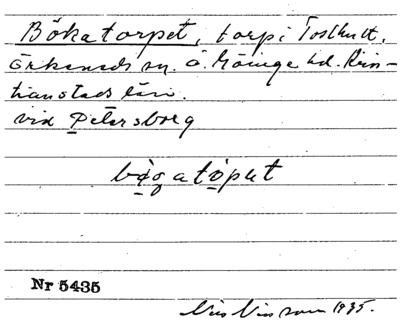 Bökatorpet, torp i Toshult,
Örkeneds sn. Ö. Göinge hd. Kris-
tianstads län.
vid Petersborg
bögatöput
Nr 5435
Nils Nilsson 1935.